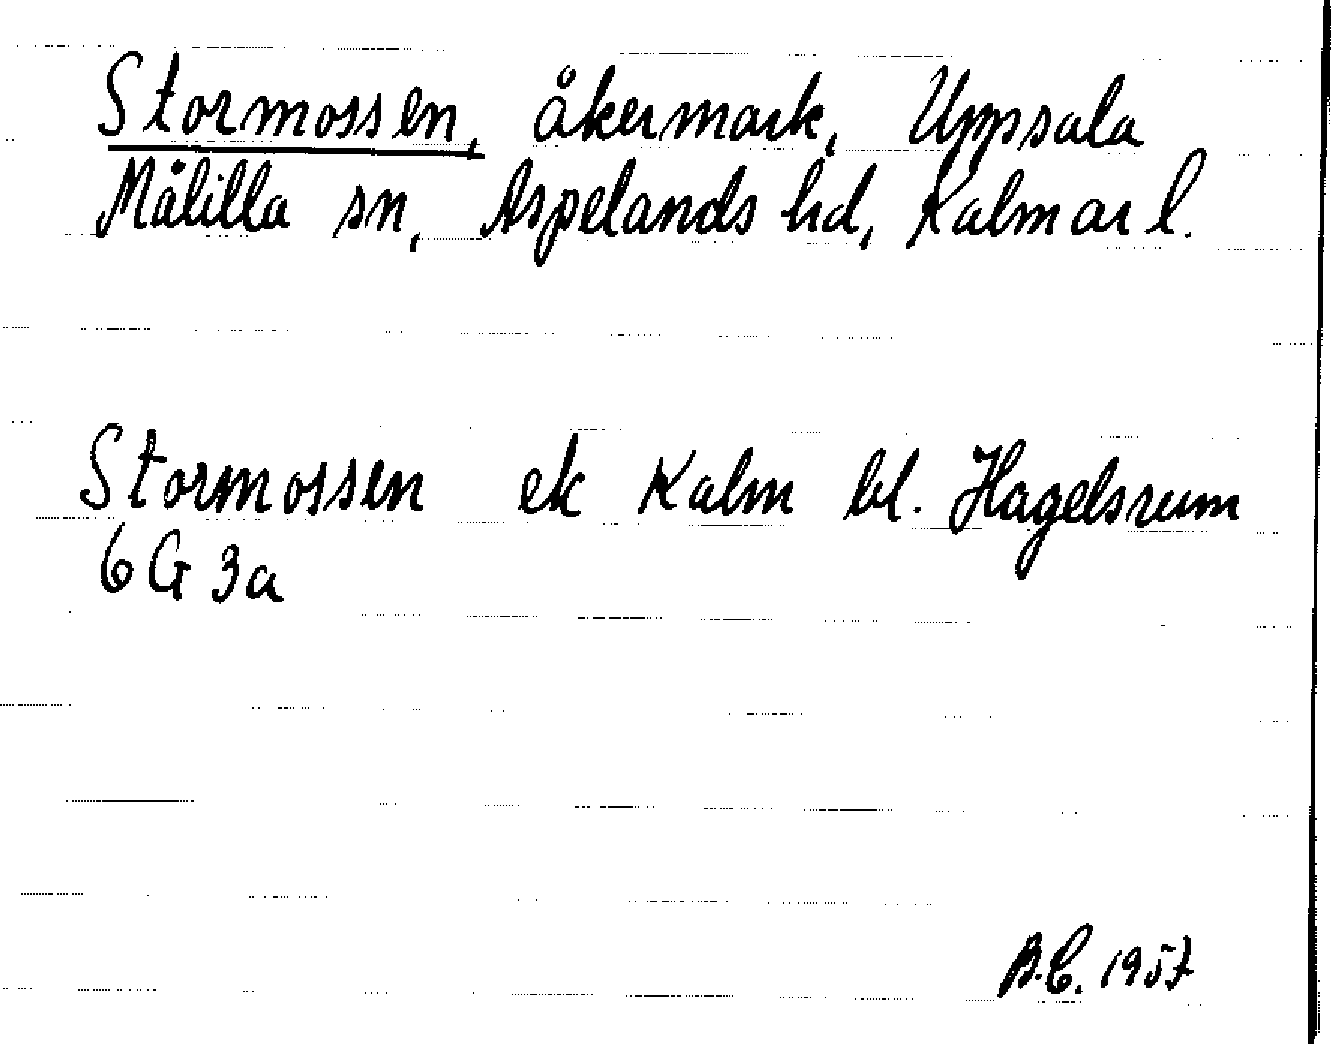 Stormossen, åkermark, Uppsala
Målilla sn, Aspelands hd, Kalmar l.
Stormossen ek Kalm bl. Hagelsrum
6 G 3a
B.E. 1957